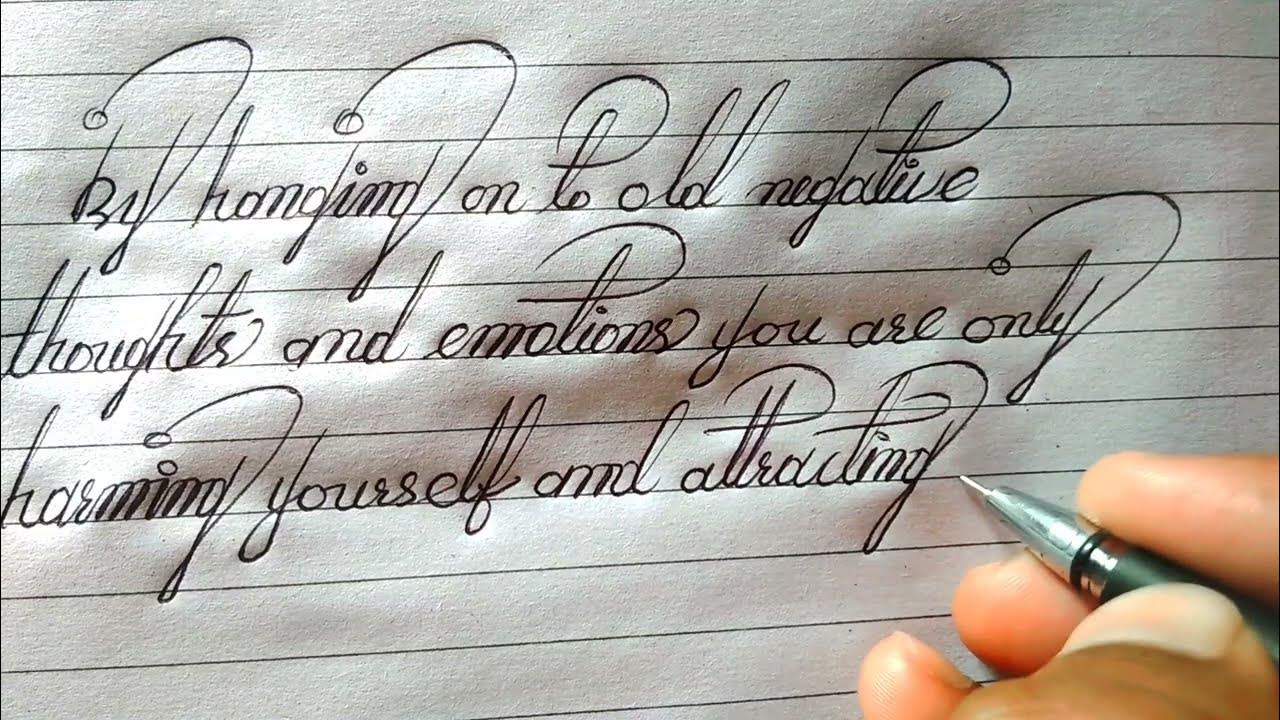 By hanging on to old negative
thoughts and emotions you are only
harming yourself and attracting